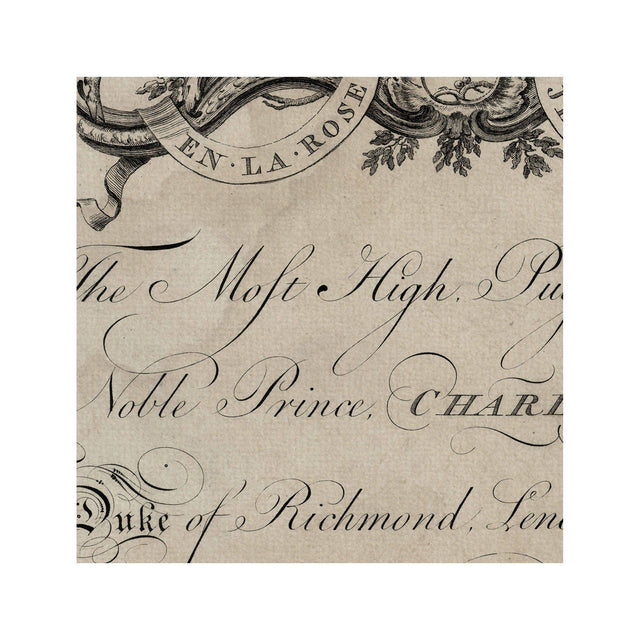 EN·LA·ROSE
The Moſt High, Pu
Noble Prince, CHARL
Duke of Richmond, Len